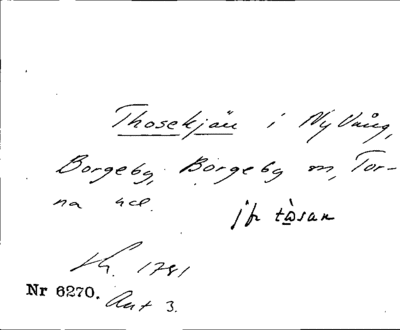 Thosekjän i Ny Vång,
Borgeby, Borgeby sn, Tor-
na hd.
jfr tòsan
Lk. 1781
Nr 6270. Akt 3.